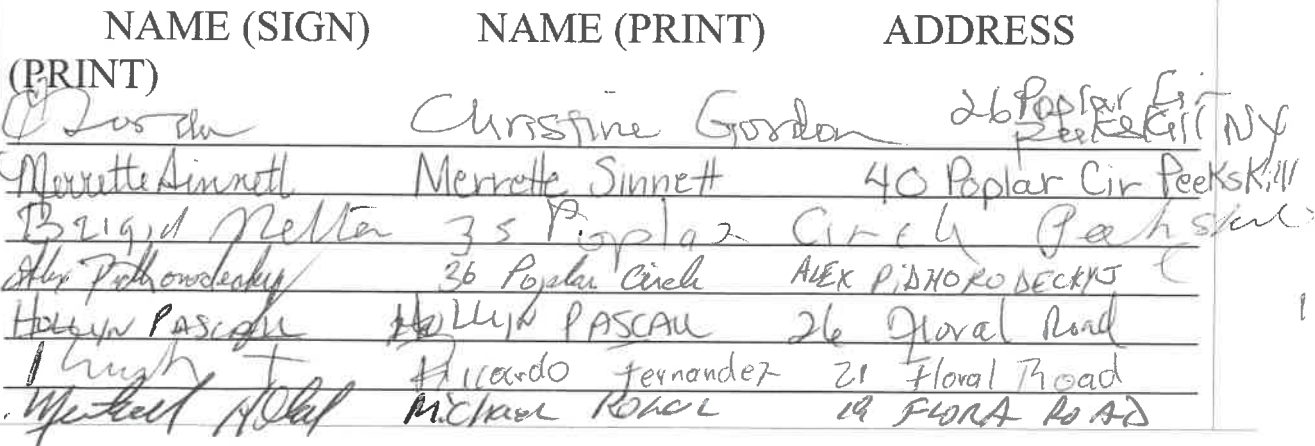 NAME (SIGN) NAME (PRINT) ADDRESS
(PRINT)
C Gordon Christine Gordon 26 Poplar Cir Peekskill NY
Merrette Sinnett Merrette Sinnett 40 Poplar Cir Peekskill
Brigid 35 Poplar Circle Peekskill
Alex 36 Poplar Circle ALEX PIDHORODECKYJ
HOLLYN PASCALE HOLLYN PASCALE 26 Floral Road
Ricardo Fernandez 21 Floral Road
Michael Michael 19 FLORA ROAD